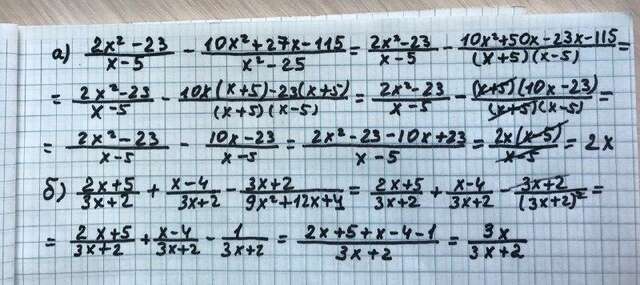 а) (2x²-23)/(x-5) - (10x²+27x-115)/(x²-25) = (2x²-23)/(x-5) - (10x²+50x-23x-115)/((x+5)(x-5)) =
= (2x²-23)/(x-5) - (10x(x+5)-23(x+5))/((x+5)(x-5)) = (2x²-23)/(x-5) - ((x+5)(10x-23))/((x+5)(x-5)) =
= (2x²-23)/(x-5) - (10x-23)/(x-5) = (2x²-23-10x+23)/(x-5) = (2x(x-5))/(x-5) = 2x
б) (2x+5)/(3x+2) + (x-4)/(3x+2) - (3x+2)/(9x²+12x+4) = (2x+5)/(3x+2) + (x-4)/(3x+2) - (3x+2)/(3x+2)² =
= (2x+5)/(3x+2) + (x-4)/(3x+2) - 1/(3x+2) = (2x+5+x-4-1)/(3x+2) = 3x/(3x+2)